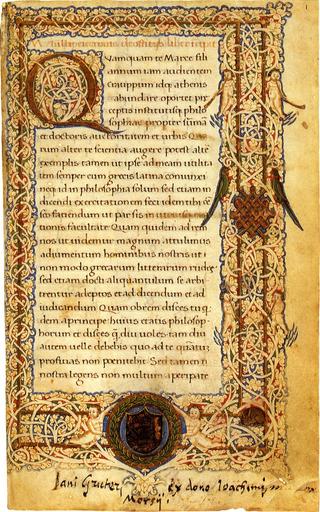 Quamquam te Marce fili
annum iam audientem
cratippum idq; athenis
abundare oportet prę
ceptis institutisq; philo
sophiae propter summā
et doctoris auctoritatem et urbis Q
rum alter te scientia augere potest alter
exemplis tamen ut ipse ad meam utilita
tem semper cum grecis latina coniunxi
neq; id in philosophia solum sed etiam in
dicendi exercitatione feci idem tibi cē
seo faciendum ut par sis in utriusq;
tionis facultate Quam quidem ad rem
nos ut uidemur magnum attulimus
adiumentum hominibus nostris ut
non modo grecarum litterarum rudes
sed etiam docti aliquantulum se arbi
trentur adeptos et ad dicendum et ad
iudicandum Quam obrem disces tu q
dem a principe huius etatis philosop
horum et disces q̃diu uoles tam diu
autem uelle debebis quo ad te quātū
proficias non peenitebit Sed tamen n
nostra legens non multum a peripate
Jani Gruteri ex dono Ioachimi
Morsij